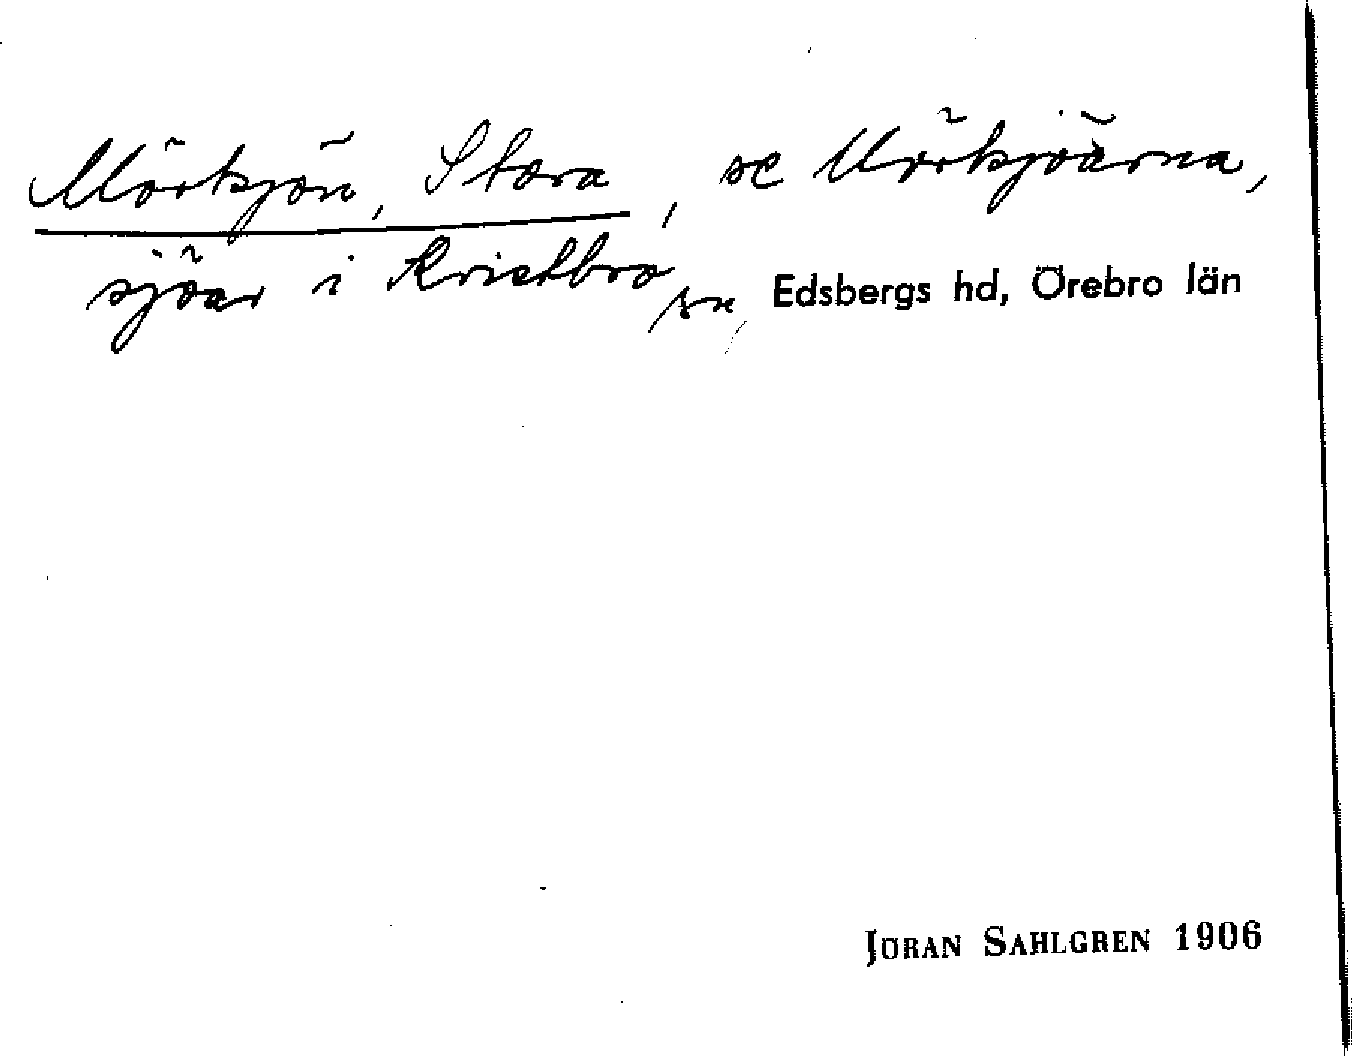 Mörkjön, Stora, se Mörkjöarna,
sjöar i Kristbro sn, Edsbergs hd, Örebro län
JÖRAN SAHLGREN 1906